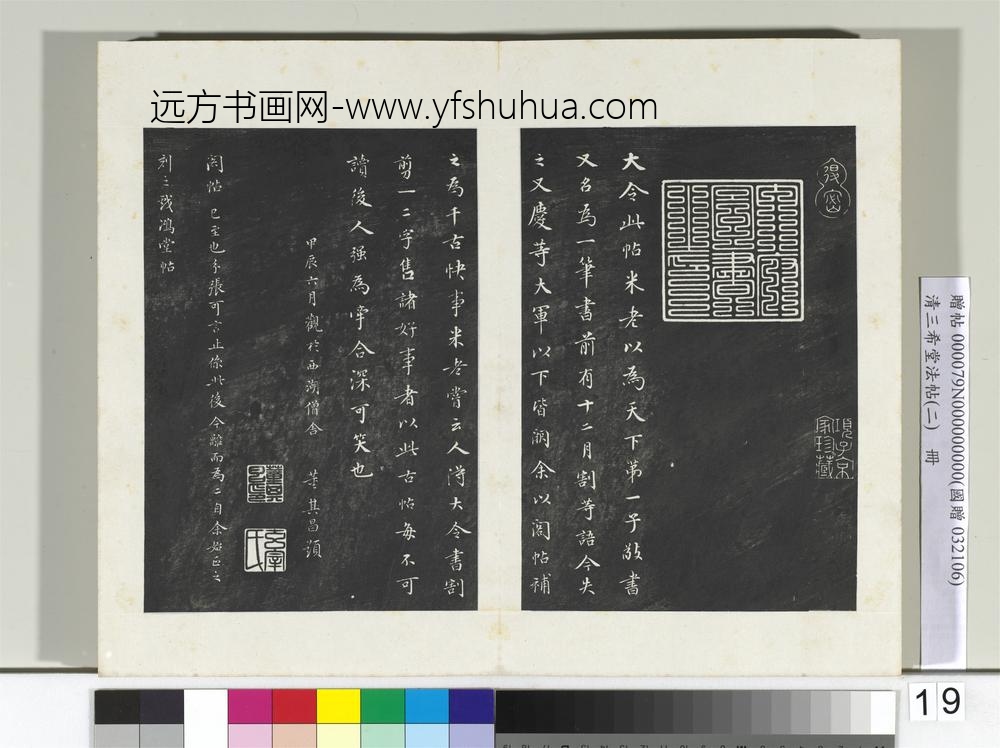 远方书画网-www.yfshuhua.com
大令此帖米老以為天下第一子敬書
又名為一筆書前有十二月割等語今失
之又慶等大軍以下皆闕余以閣帖補
之為千古快事米老嘗云人得大令書割
剪一二字售諸好事者以此古帖每不可
讀後人強為牽合深可笑也
甲辰六月觀於西湖僧舍 董其昌題
閣帖 已至也
止
此後今離而為二自余始正之
刻之戲鴻堂帖
項子京
家珍藏
董其
昌印
玄宰
氏
贈帖 000079N000000000(國贈 032106)
清三希堂法帖(二) 冊
19